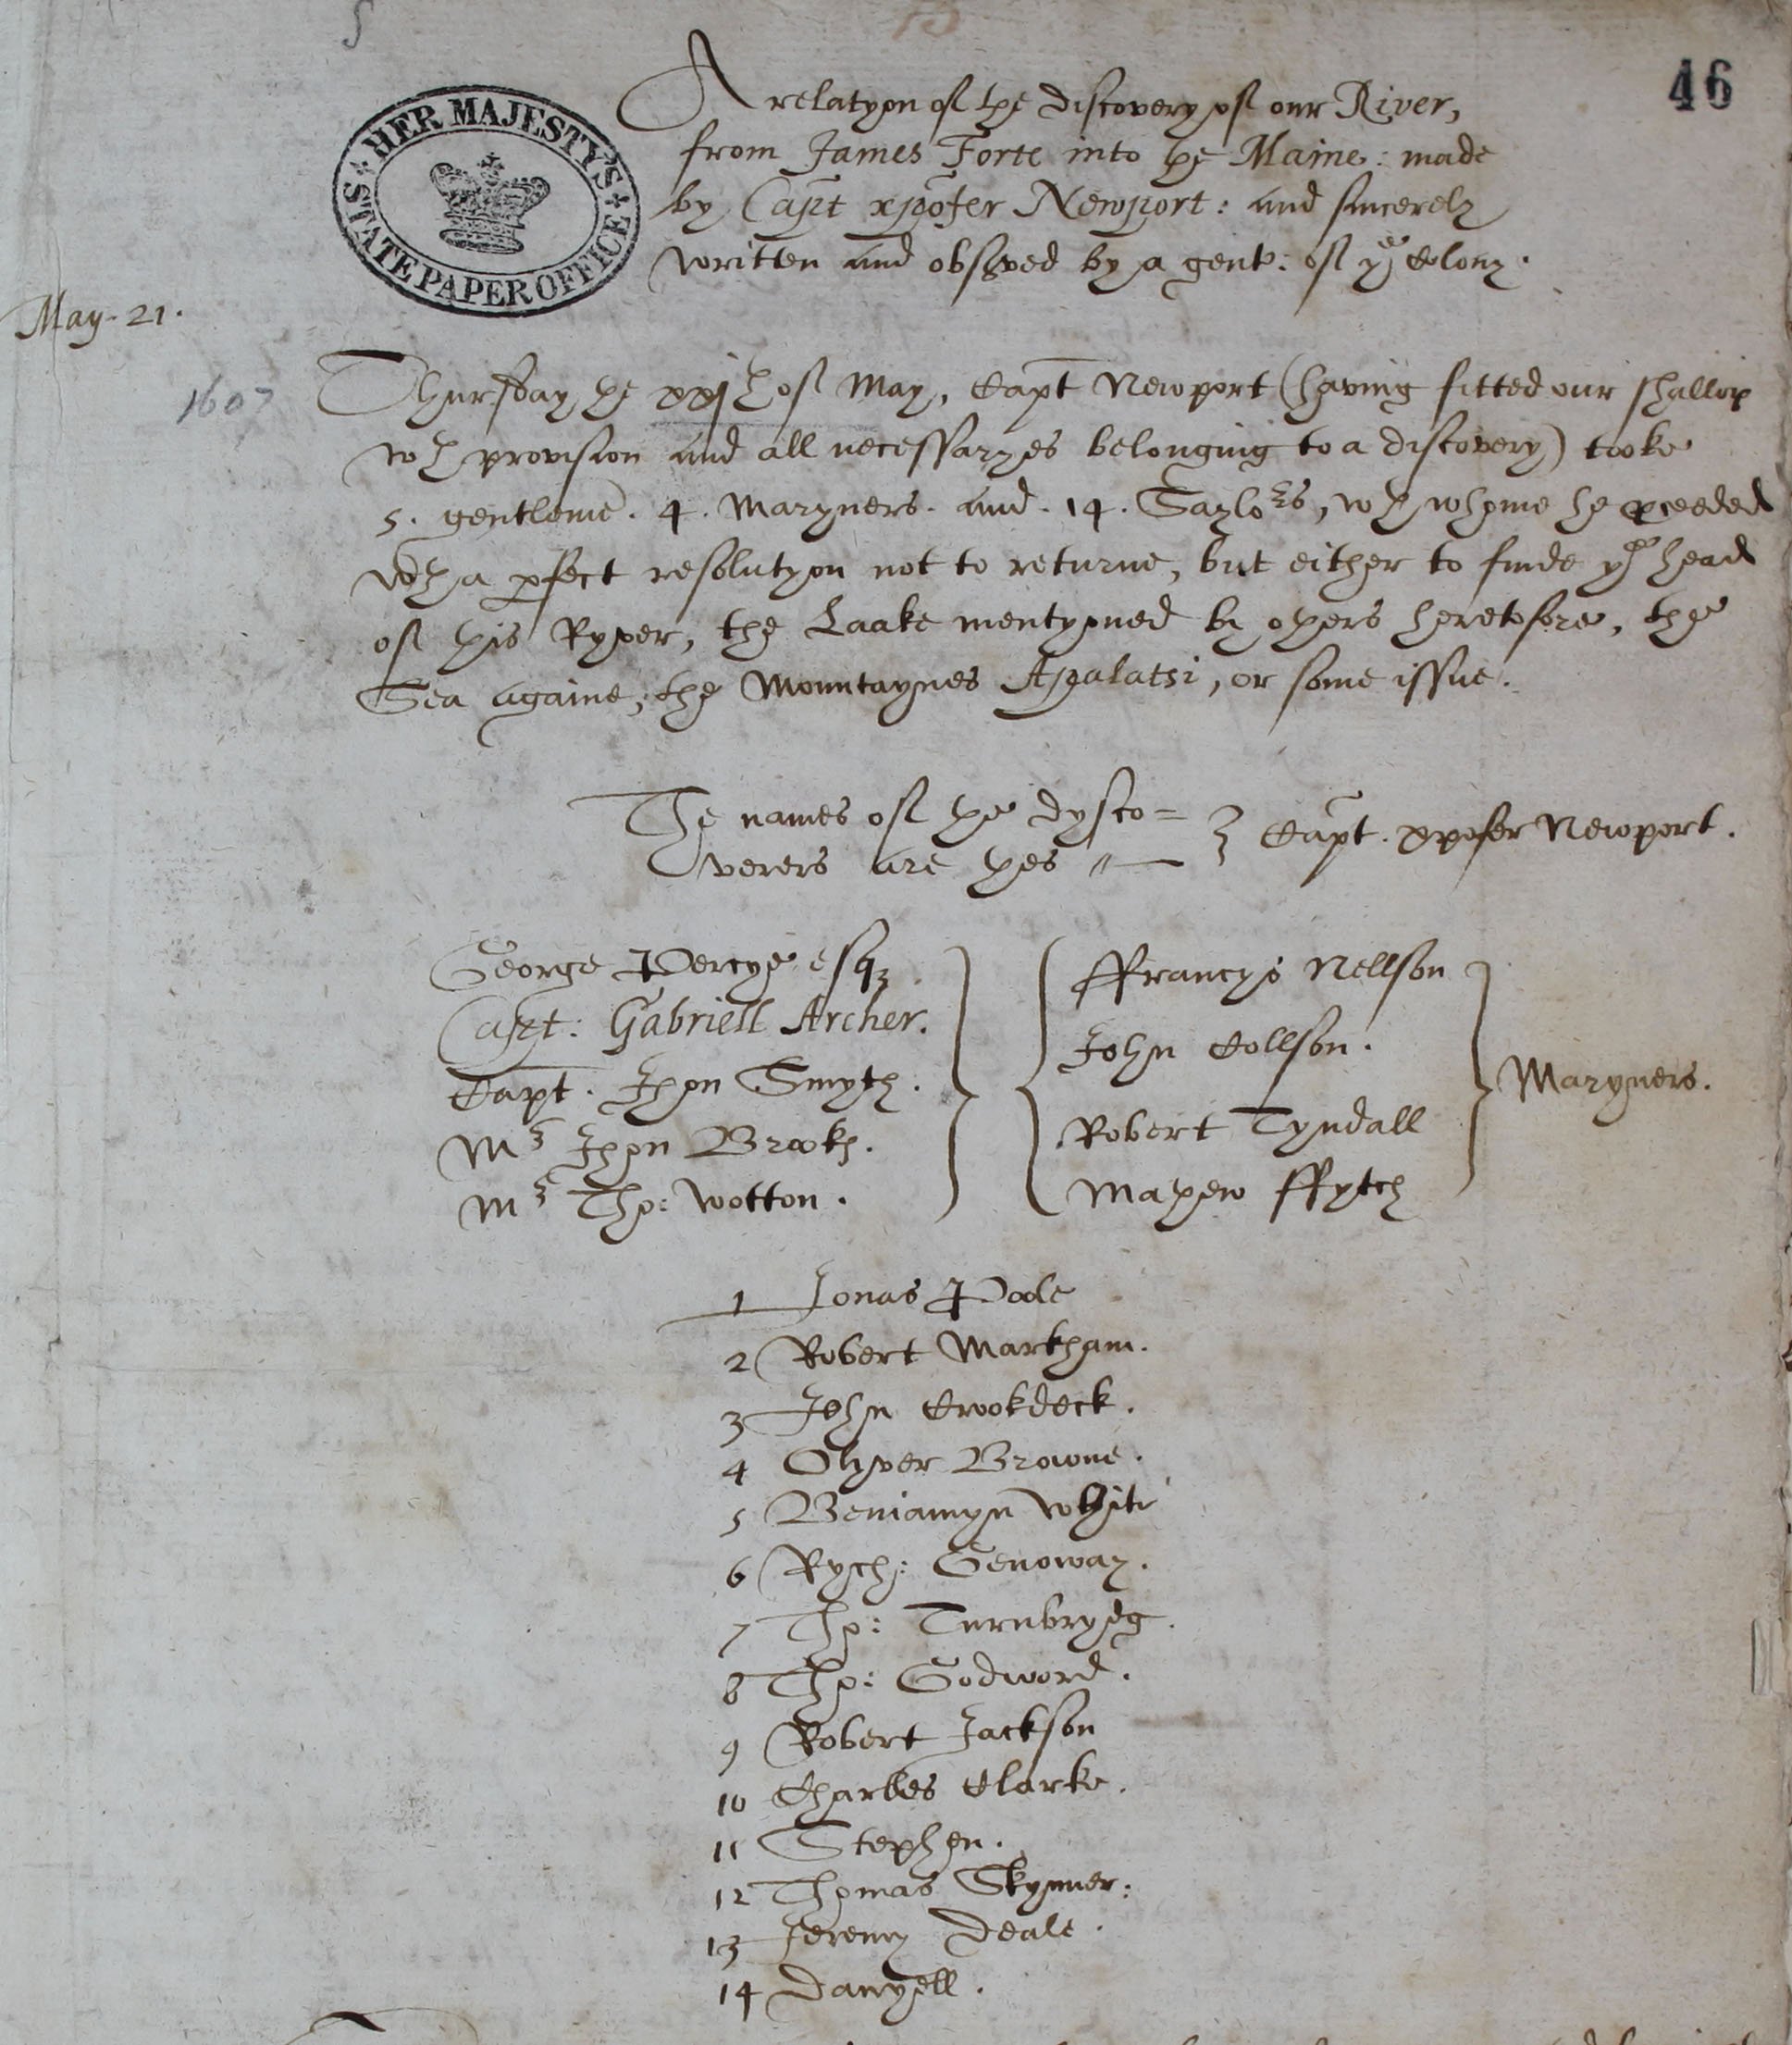 46
HER MAJESTY'S
STATE PAPER OFFICE
A relatyon of the discovery of our River,
from James Forte into the Maine: made
by Capt xpofer Newport: and sincerely
written and observed by a gent: of ye Colony.
May. 21.
1607
Thursday the xxjth of May, Capt Newport (having fitted our shallop
wth provision and all necessaryes belonging to a discovery) tooke
5. gentleme. 4. Maryners. and. 14. Saylors, wth whome he proceeded
wth a perfect resolutyon not to returne, but either to finde ye head
of this Ryver, the Laake mentyoned by others heretofore, the
Sea againe, the Mountaynes Apalatsi, or some issue.
The names of the dysco=
verers are thes
Capt. xpofer Newport.
George Percye esq
Capt: Gabriell Archer.
Capt. Jhon Smyth.
Mr Jhon Brookes.
Mr Tho: Wotton.
ffrancys Nellson
John Collson.
Robert Tyndall
Mathew ffytch
Maryners.
1 Jonas Poole
2 Robert Markham.
3 John Crookdeck.
4 Olyver Browne.
5 Beniamyn White
6 Rych: Genoway.
7 Tho: Turnbrydg.
8 Tho: Godword.
9 Robert Jackson
10 Charles Clarke.
11 Stephen.
12 Thomas Skynner:
13 Jeremy Deale.
14 Danyell.